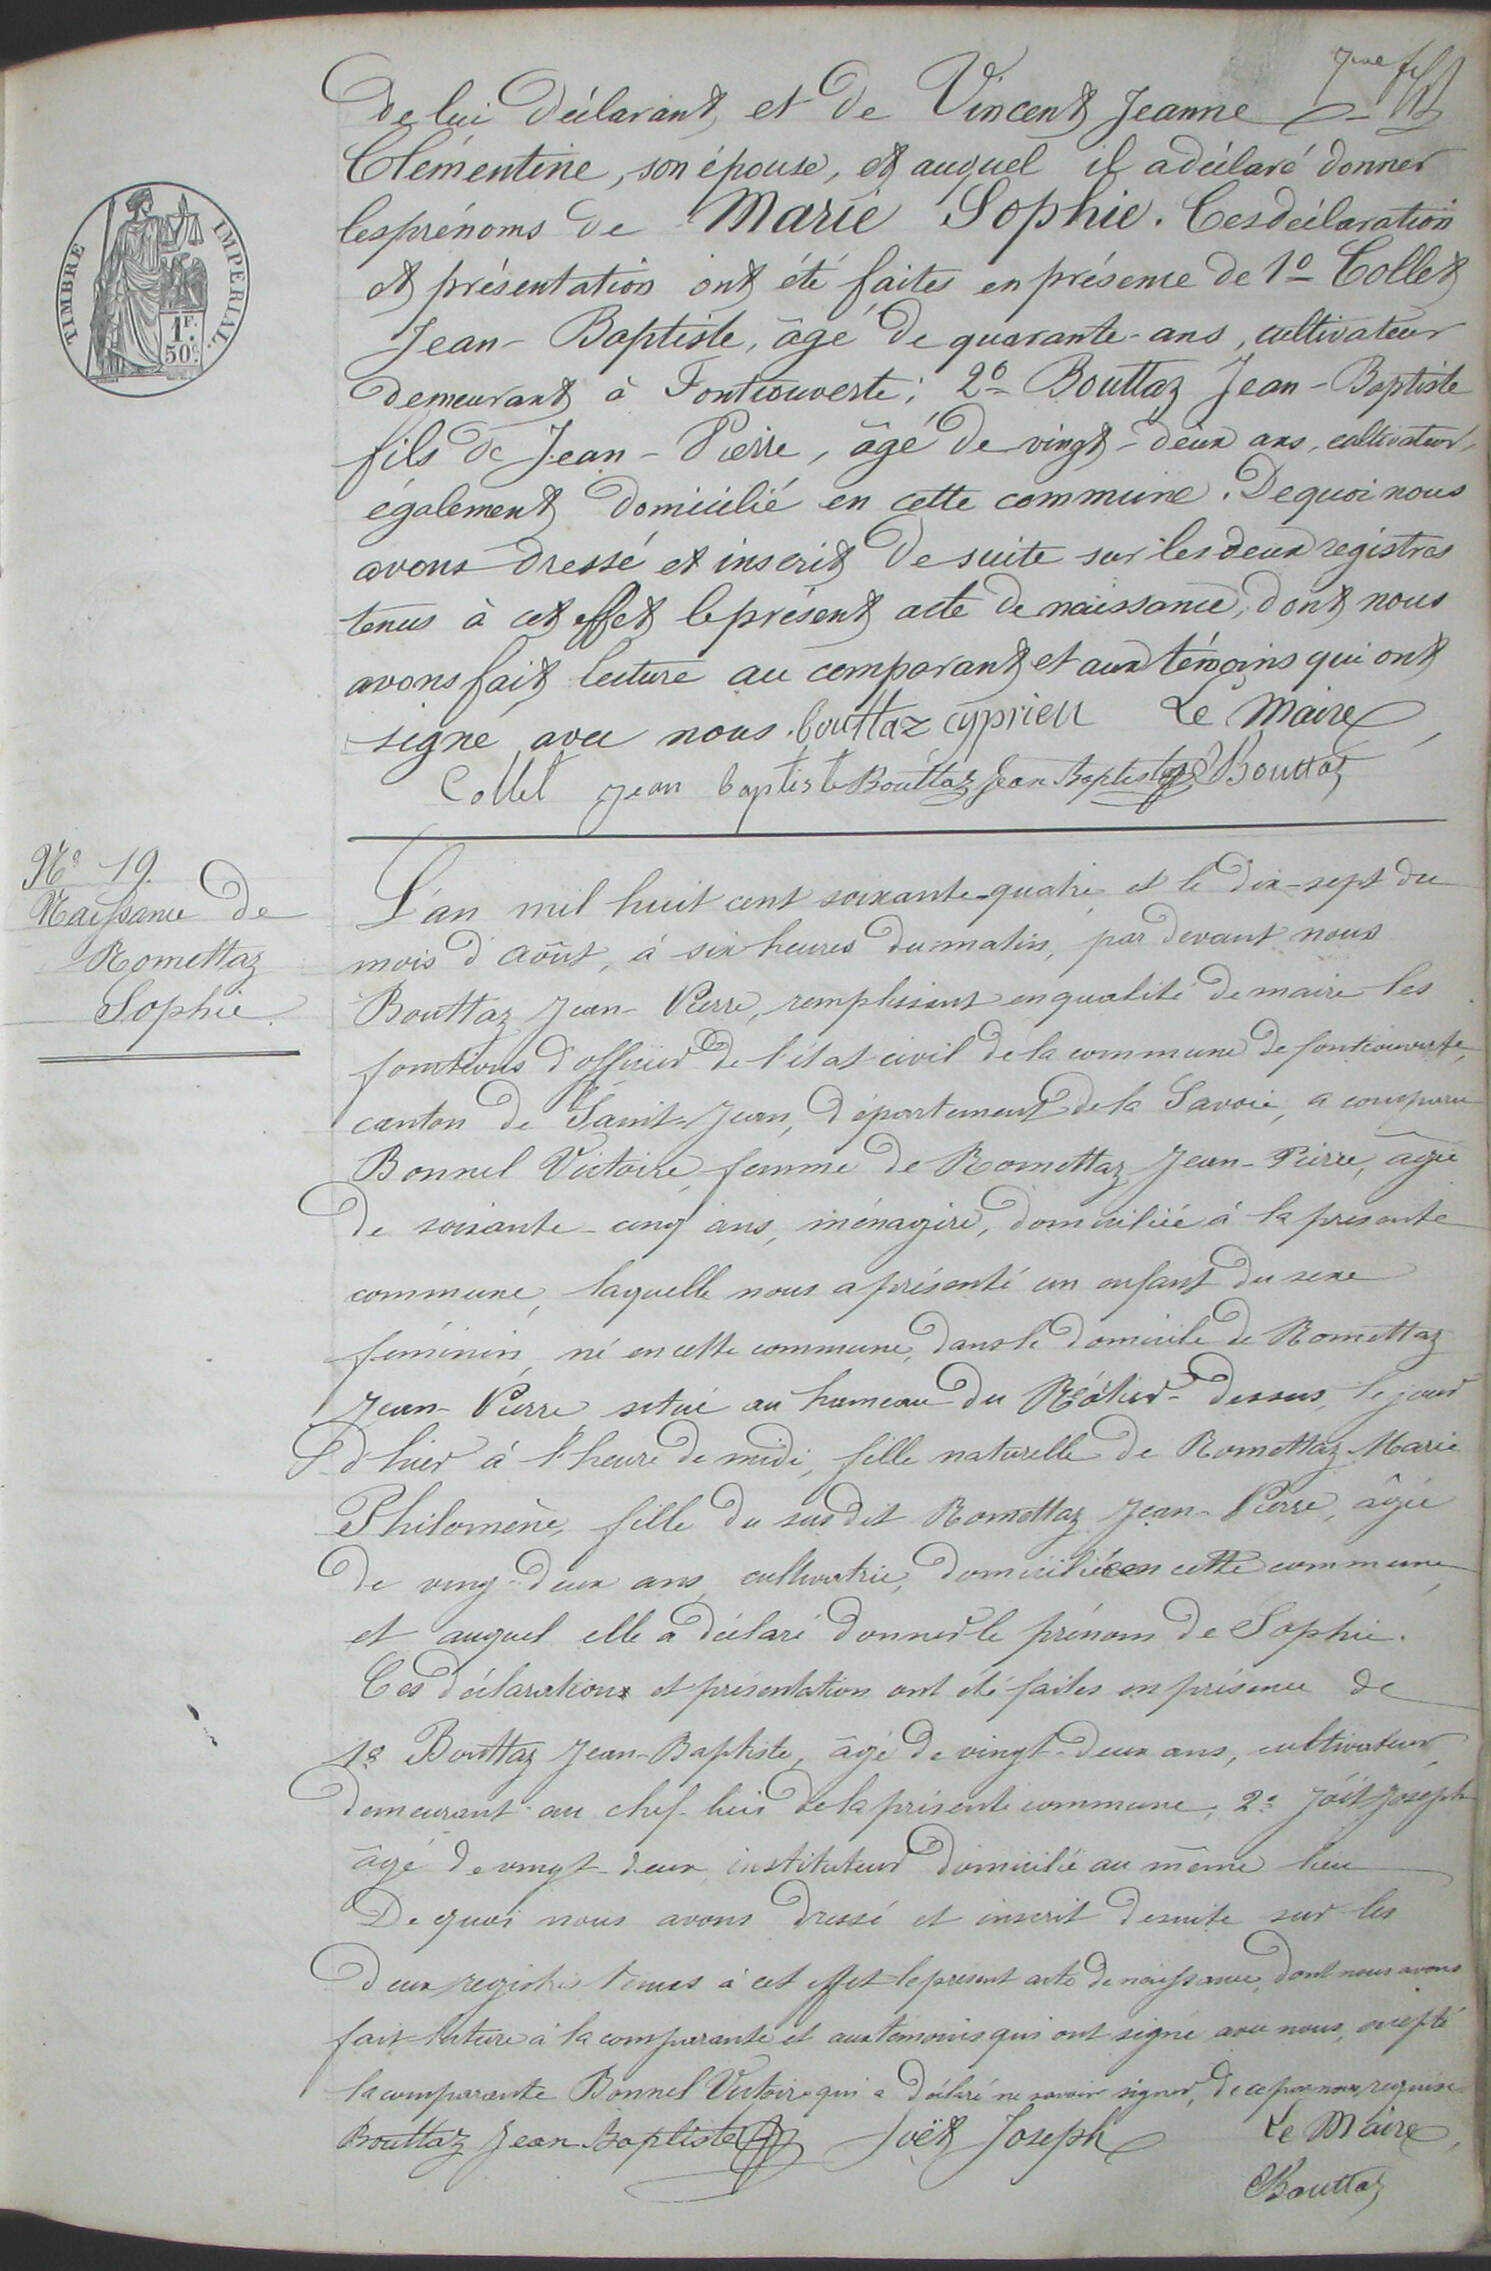 7me ft
de lui déclarant, et de Vincent Jeanne
Clémentine, son épouse, et auquel il a déclaré donner
les prénoms de Marie Sophie. Ces déclaration
et présentation ont été faites en présence de 1º Collet
Jean-Baptiste, âgé de quarante-ans, cultivateur
demeurant à Fontcouverte; 2º Bouttaz Jean-Baptiste
fils de Jean-Pierre, âgé de vingt-deux ans, cultivateur,
également domicilié en cette commune. De quoi nous
avons dressé et inscrit de suite sur les deux registres
tenus à cet effet le présent acte de naissance, dont nous
avons fait lecture au comparant et aux témoins qui ont
signé avec nous. bouttaz cyprien Le Maire,
Collet jean baptiste Bouttaz Jean Baptiste Bouttaz
TIMBRE IMPERIAL.
1F.
50c.
Nº 19.
Naissance de
Romettaz
Sophie.
L'an mil huit cent soixante-quatre et le dix-sept du
mois d'Août, à six heures du matin, par devant nous
Bouttaz Jean-Pierre, remplissant en qualité de maire les
fonctions d'officier de l'état civil de la commune de fontcouverte,
canton de Saint-Jean, département de la Savoie, a comparu
Bonnel Victoire, femme de Romettaz Jean-Pierre, âgée
de soixante-cinq ans, ménagère, domiciliée à la présente
commune, laquelle nous a présenté un enfant du sexe
féminin, né en cette commune, dans le domicile de Romettaz
Jean-Pierre situé au hameau du dessus, le jour
d'hier à l'heure de midi, fille naturelle de Romettaz Marie
Philomène, fille du susdit Romettaz Jean-Pierre, âgée
de ving-deux ans, cultivatrice, domiciliée en cette commune,
et auquel elle a déclaré donner le prénom de Sophie.
Ces déclarations et présentation ont été faites en présence de
1º Bouttaz Jean-Baptiste, âgé de vingt-deux ans, cultivateur,
demeurant au chef-lieu de la présente commune; 2º Joët Joseph
âgé de vingt-deux, instituteur domicilié au même lieu
De quoi nous avons dressé et inscrit desuite sur les
deux registres tenus à cet effet le présent acte de naissance, dont nous avons
fait lecture à la comparante et aux témoins qui ont signé avec nous, excepté
la comparante Bonnel Victoire qui a déclaré ne savoir signer, de ce par nous requise
Bouttaz Jean Baptiste Joët Joseph Le Maire,
Bouttaz